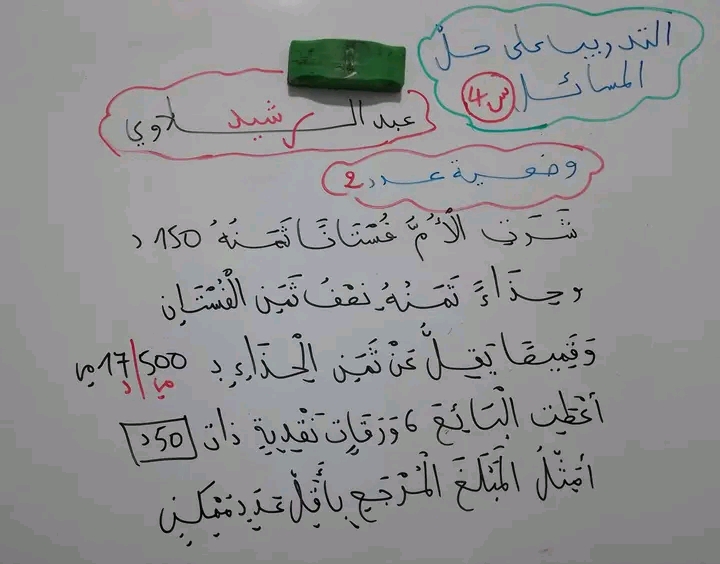 التدريب على حلّ
المسائل س4
عبد الرشيد لاوي
وضعية عدد 2
شَرَتِ الْأُمُّ فُسْتَانًا ثَمَنُهُ 150 د
وحِذَاءً ثَمَنُهُ نِصْفُ ثَمَنِ الْفُسْتَانِ
وَقَمِيصًا يَقِلُّ عَنْ ثَمَنِ الْحِذَاءِ بِ 17500 مي
د مي
أَعْطَتِ الْبَائِعَ 6 وَرَقَاتٍ نَقْدِيَّةٍ ذات 50 د
أُمَثِّلُ الْمَبْلَغَ الْمُرْجَعِ بِأَقَلِّ عَدَدٍ مُمْكِنٍ